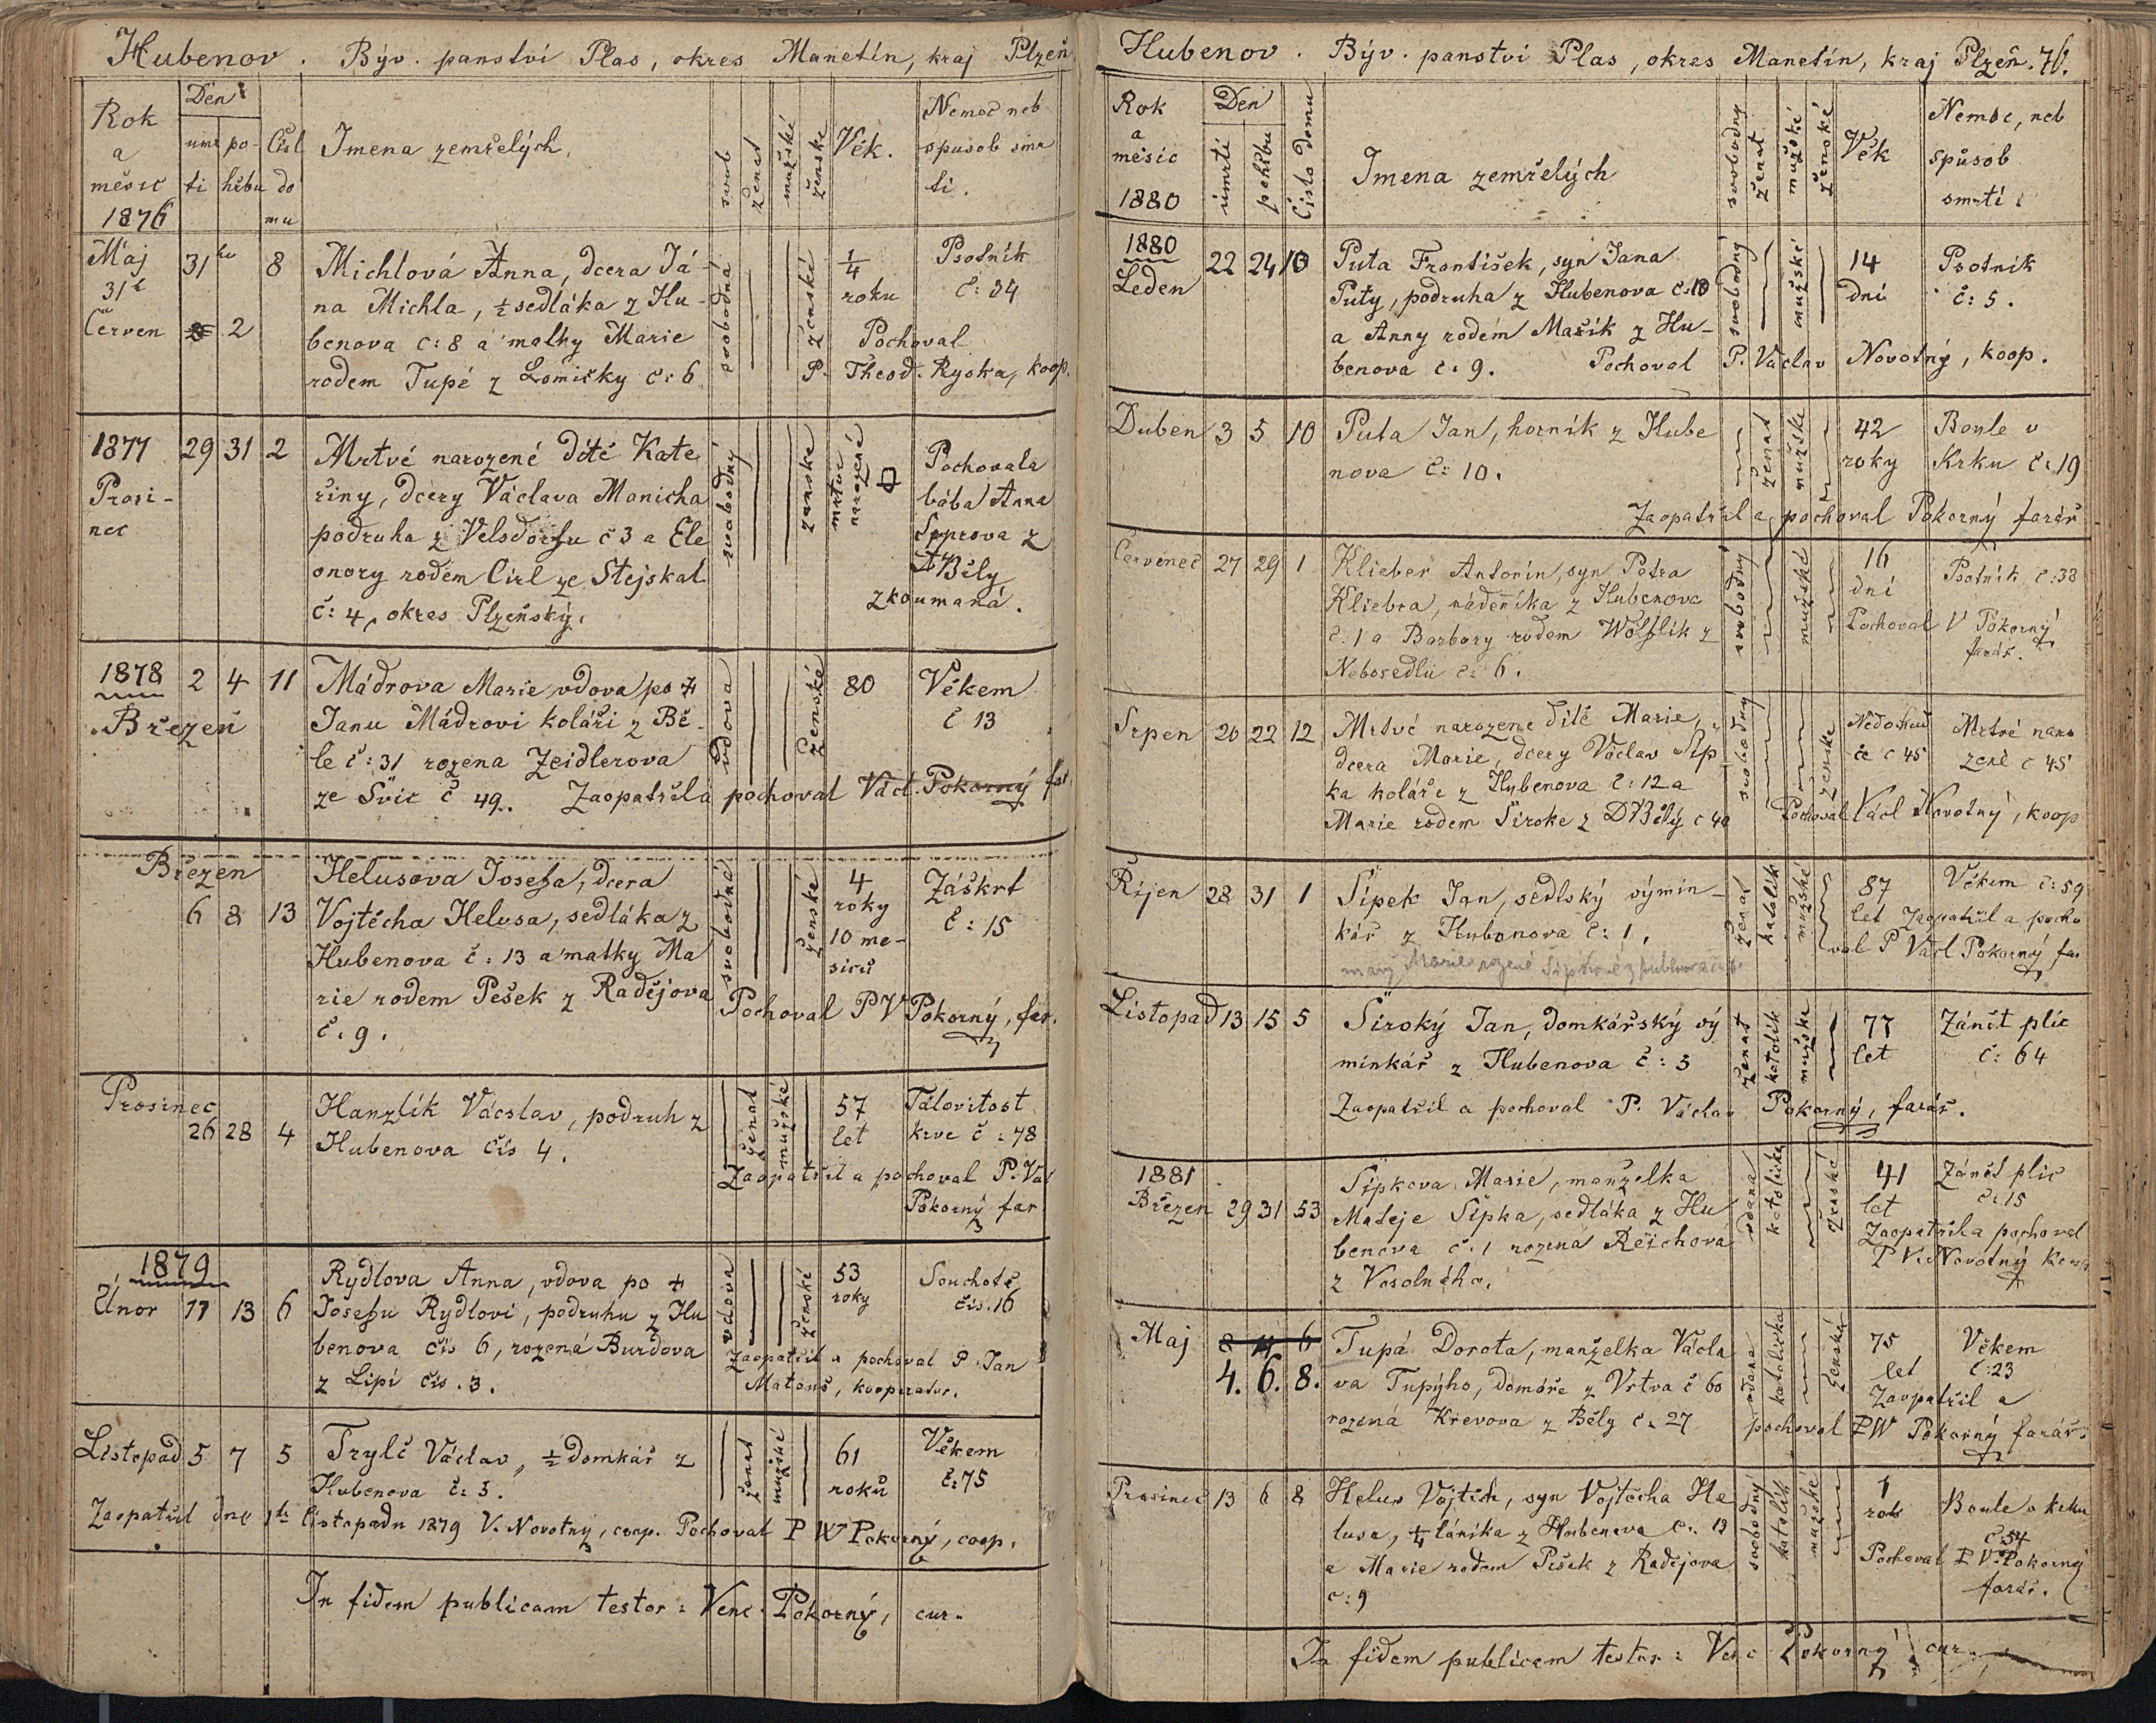 Hubenov. Býv. panství Plas, okres Manetín, kraj Plzeň
Rok a měsíc 1876
Den
úmr ti
po- hřbu
Čísl do mu
Jmena zemřelých.
svob
ženat
mužské
ženske
Věk.
Nemoc neb spusob smr ti.
Máj 31 8 Michlová Anna, dcera Já-
31
na Michla, ½ sedláka z Hu-
Červen 2
benova č: 8 a matky Marie
rodem Tupé z Lomičky č: 6
svobodná
ženské
¼ roku
Psotník
č: 34
Pochoval
P. Theod. Ryska, koop.
1877 29 31 2 Mrtvé narozené dítě Kate
Prosi-
nec
řiny, dcery Václava Manicha
podruha z Velsdorfu č 3 a Ele
onory rodem Cirl ze Stejskal
č: 4, okres Plzeňský.
svobodný
ženske
mrtvé narozené
Pochovala
bába Anna
z
Běly
zkoumaná.
1878 2 4 11 Mádrova Marie vdova po †
Březen
Janu Mádrovi koláři z Bě-
le č: 31 rozena Zeidlerova
ze Švic č 49. Zaopatřil a pochoval Václ. Pokorný far
vdova
ženské
80
Věkem
č 13
Březen
6 8 13
Helusova Josefa, dcera
Vojtěcha Helusa, sedláka z
Hubenova č: 13 a matky Ma
rie rodem Pešek z Radějova
č. 9.
svobodná
ženské
4 roky
10 me-
siců
Záškrt
č: 15
Pochoval P V Pokorný, far.
Prosinec
26 28 4
Hanzlík Vácslav, podruh z
Hubenova čís 4.
ženat
mužské
57 let
Tálovitost
krve č: 78
Zaopatřil a pochoval P. Vác
Pokorný far
1879
Únor 11 13 6
Rydlova Anna, vdova po †
Josefu Rydlovi, podruhu z Hu
benova čís 6, rozená Burdova
z Lipí čís. 3.
vdova
ženské
53 roky
Souchotě
čís. 16
Zaopatřil a pochoval P. Jan
Matouš, kooperator.
Listopad 5 7 5 Trylč Václav, ½ domkář z
Hubenova č: 5.
ženat
mužské
61 roků
Věkem
č: 75
Zaopatřil dne 1ho listopadu 1879 V. Novotný, coop. Pochoval P W Pokorný, coop.
In fidem publicam testor: Venc. Pokorný, cur.
Hubenov. Býv. panství Plas, okres Manetín, kraj Plzeň. 76.
Rok a měsíc 1880
Den
úmrtí
pohřbu
Číslo domu
Jmena zemřelých
svobodný
ženat
mužské
ženské
Věk
Nemoc, neb spůsob smrti.
1880
Leden 22 24 10
Puta František, syn Jana
Puty, podruha z Hubenova č: 10
a Anny rodem Mašik z Hu-
benova č: 9. Pochoval P. Václav Novotný, koop.
svobodný
mužské
14 dní
Psotník
č: 5.
Duben 3 5 10 Puta Jan, horník z Hube
nova č: 10.
ženat
mužske
42 roky
Boule v
Krku č: 19
Zaopatřil a pochoval Pokorný farář
Červenec 27 29 1 Klieber Antonín, syn Petra
Kliebra, nádeníka z Hubenova
č: 1 a Barbory rodem Wölflik z
Nebosedlu č: 6.
svobodný
mužské
16 dní
Psotník č: 38
Pochoval V Pokorný
farář.
Srpen 20 22 12 Mrtvé narozene dítě Marie,
dcera Marie, dcery Václav Šíp
ka koláře z Hubenova č: 12 a
Marie rodem Široke z D Běly č 40
svobodný
ženske
Mrtvé naro
zené č 45
Pochoval Václ Novotný, koop
Říjen 28 31 1 Šípek Jan, sedlský výmin-
kář z Hubenova č: 1.
Marie rozené Šípkové z Hubenova
ženat
katolík
mužské
87 let
Věkem č: 59
Zaopatřil a pocho
val P Václ Pokorný far
Listopad 13 15 5 Široký Jan, domkářský vý
minkář z Hubenova č: 5
ženat
katolík
mužske
77 let
Zánět plic
č: 64
Zaopatřil a pochoval P. Václav Pokorný, farář.
1881
Březen 29 31 53
Šípkova Marie, manželka
Mateje Šípka, sedláka z Hu
benova č. 1 rozená Reichova
z Vosolného.
vdaná
katolička
ženská
41 let
Zánět plic
č: 15
Zaopatřil a pochoval
P V. Novotný koop
Maj
4. 6. 8.
Tupá Dorota, manželka Václa
va Tupýho, domáře z Vrtva č 60
rozená Křevova z Běly č. 27
vdana
katolička
ženská
75 let
Věkem
č: 23
Zaopatřil a
pochoval P W Pokorný farář.
Prosinec 13 6 8 Helus Vojtěch, syn Vojtěcha He
lusa, ¼ láníka z Hubenova č. 13
a Marie rodem Pešek z Radějova
č: 9
svobodný
katolík
mužské
1 rok
Boule v krku
č 54
Pochoval P V. Pokorný
farář.
In fidem publicam testor: Venc Pokorný cur.